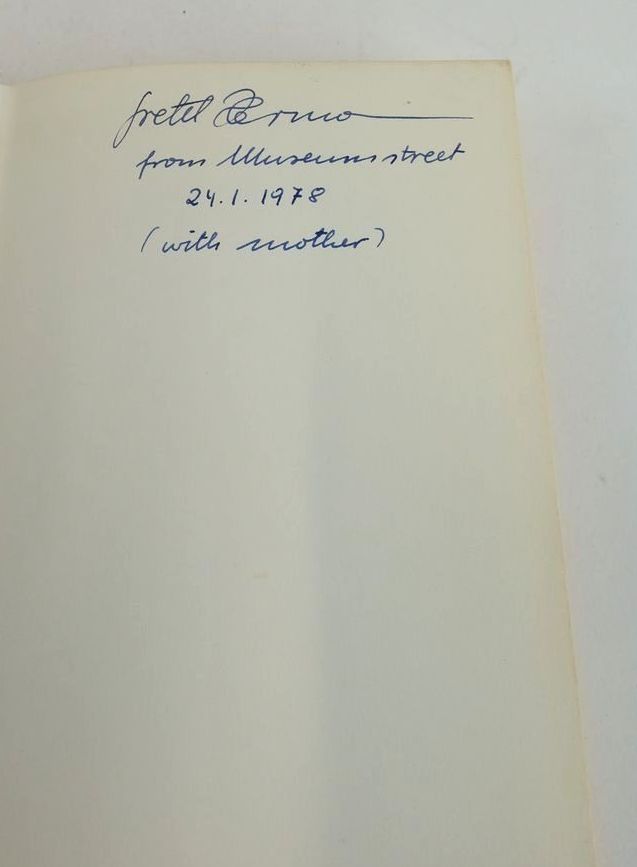 Gretel
from Museumstreet
24.1.1978
(with mother)